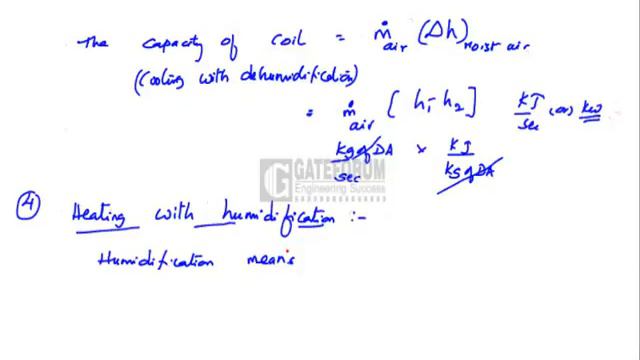 The capacity of coil = ṁair (Δh)Moist air
(Cooling with dehumidification)
= ṁair [h1 - h2] KJ/sec (or) kw
kg of DA/sec × KJ/kg of DA
GATEFORUM
Engineering Success
④ Heating with humidification :-
Humidification means